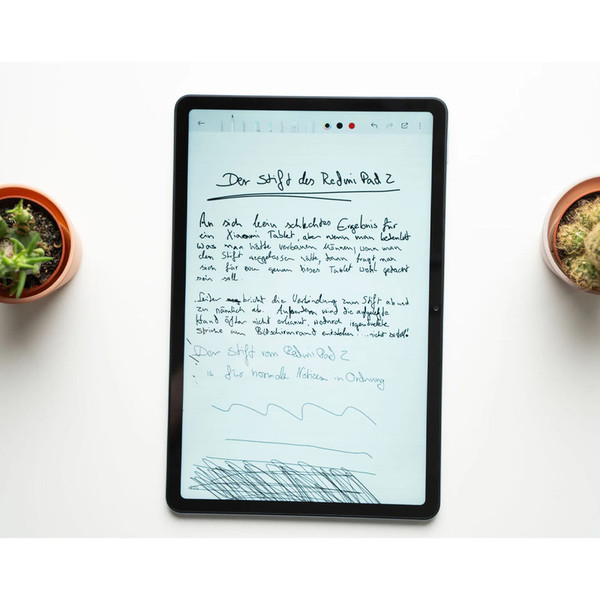 Der Stift des Redmi Pad 2
An sich kein schlechtes Ergebnis für
ein Xiaomi Tablet, aber wenn man bedenkt
was man hätte verbauen können, wenn man
den Stift weggelassen hätte, dann fragt man
sich für wen genau dieses Tablet wohl gedacht
sein soll
Leider bricht die Verbindung zum Stift ab und
zu nämlich ab. Außerdem wird die aufgelegte
Hand öfter nicht erkannt, wodurch irgendwelche
Striche am Bildschirmrand entstehen
Der Stift vom Redmi Pad 2
is für normale Notizen in Ordnung